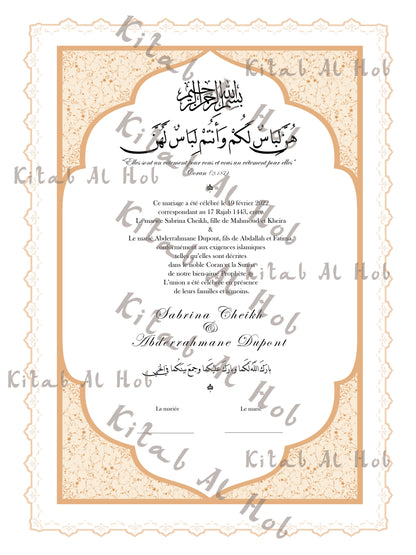 Kitab Al Hob
Kitab Al Hob
بسم الله الرحمن الرحيم
هُنَّ لِبَاسٌ لَكُمْ وَأَنْتُمْ لِبَاسٌ لَهُنَّ
"Elles sont un vêtement pour vous et vous un vêtement pour elles"
Coran (2:187)
Kitab Al Hob
Ce mariage a été célébré le 19 février 2022
correspondant au 17 Rajab 1443, entre
La mariée Sabrina Cheikh, fille de Mahmoud et Kheira
&
Le marié Abderrahmane Dupont, fils de Abdallah et Fatima
conformément aux exigences islamiques
telles qu'elles sont décrites
dans le noble Coran et la Sunna
de notre bien-aimé Prophète
L'union a été célébrée en présence
de leurs familles et témoins.
Kitab Al Hob
Kitab Al Hob
Sabrina Cheikh
&
Abderrahmane Dupont
بارك الله لكما وبارك عليكما وجمع بينكما في الخير
Kitab Al Hob
Kitab Al Hob
La mariée
Le marié
Kitab Al Hob
Kitab Al Hob